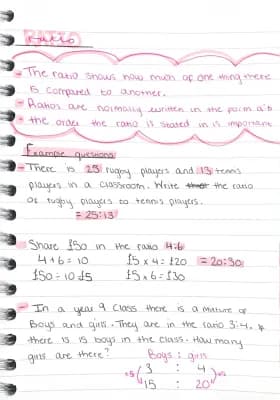 Ratio
- The ratio shows how much of one thing there
is compared to another.
- Ratios are normally written in the form a:b
- the order the ratio is stated in is important
Example questions
- There is 25 rugby players and 13 tennis
players in a classroom. Write the ratio
of rugby players to tennis players.
= 25:13
- Share £50 in the ratio 4:6
4+6=10 £5 x 4 = £20 = 20:30
£50 ÷ 10 £5 £5 x 6 = £30
- In a year 9 class there is a mixture of
Boys and girls. They are in the ratio 3:4.
there is 15 boys in the class. How many
girls are there? Boys : girls
x5 ( 3 : 4 ) x5
15 : 20